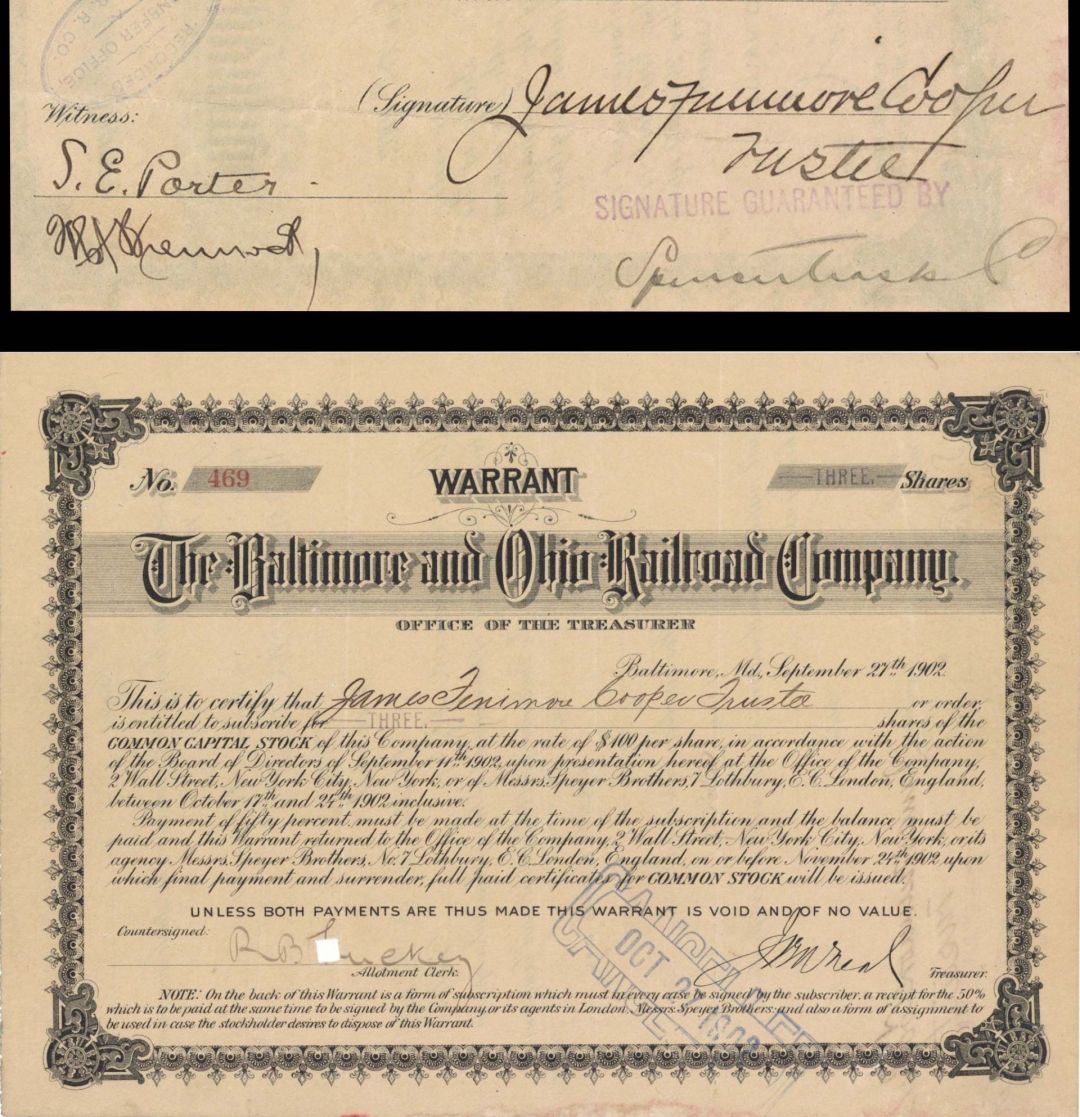 RECORDED
TRANSFER OFFICE
R. R. CO.
Witness:
(Signature) James Fenimore Cooper
Trustee
S. E. Porter
SIGNATURE GUARANTEED BY
Spencer Trask Co
No. 469
WARRANT
THREE. Shares
The Baltimore and Ohio Railroad Company.
OFFICE OF THE TREASURER
Baltimore, Md., September 27th 1902.
This is to certify that James Fenimore Cooper Trustee or order,
is entitled to subscribe for THREE. shares of the
COMMON CAPITAL STOCK of this Company, at the rate of $100 per share, in accordance with the action
of the Board of Directors of September 11th 1902, upon presentation hereof at the Office of the Company,
2 Wall Street, New York City, New York, or of Messrs. Speyer Brothers, 7 Lothbury, E. C. London, England,
between October 17th and 24th 1902 inclusive.
Payment of fifty percent. must be made at the time of the subscription and the balance must be
paid and this Warrant returned to the Office of the Company, 2 Wall Street, New York City, New York, or its
agency Messrs. Speyer Brothers, No. 7 Lothbury, E. C. London, England, on or before November 24th 1902 upon
which final payment and surrender, full paid certificates for COMMON STOCK will be issued.
UNLESS BOTH PAYMENTS ARE THUS MADE THIS WARRANT IS VOID AND OF NO VALUE.
Countersigned:
CANCELLED
OCT
Allotment Clerk.
Treasurer.
NOTE: On the back of this Warrant is a form of subscription which must in every case be signed by the subscriber, a receipt for the 50%
which is to be paid at the same time to be signed by the Company, or its agents in London, Messrs. Speyer Brothers: and also a form of assignment to
be used in case the stockholder desires to dispose of this Warrant.